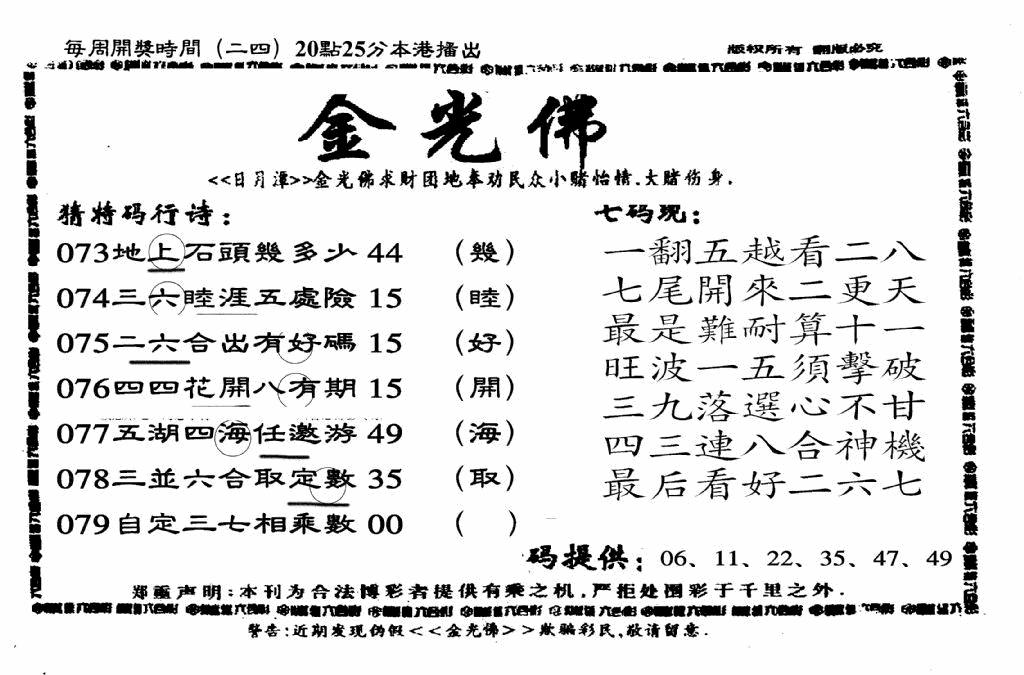 每周開獎時間（二四）20點25分本港播出
版权所有 翻版必究
金光佛
<<日月潭>>金光佛求财团地奉劝民众小赌怡情.大赌伤身.
猜特码行诗：
073地上石頭幾多少 44 （幾）
074三六睦涯五處險 15 （睦）
075二六合出有好碼 15 （好）
076四四花開八有期 15 （開）
077五湖四海任邀游 49 （海）
078三並六合取定數 35 （取）
079自定三七相乘數 00 （ ）
七码现：
一翻五越看二八
七尾開來二更天
最是難耐算十一
旺波一五須擊破
三九落選心不甘
四三連八合神機
最后看好二六七
码提供：06、11、22、35、47、49
郑重声明：本刊为合法博彩者提供有乘之机，严拒处圈彩于千里之外．
警告：近期发现伪假<<金光佛>>欺骗彩民，敬请留意．